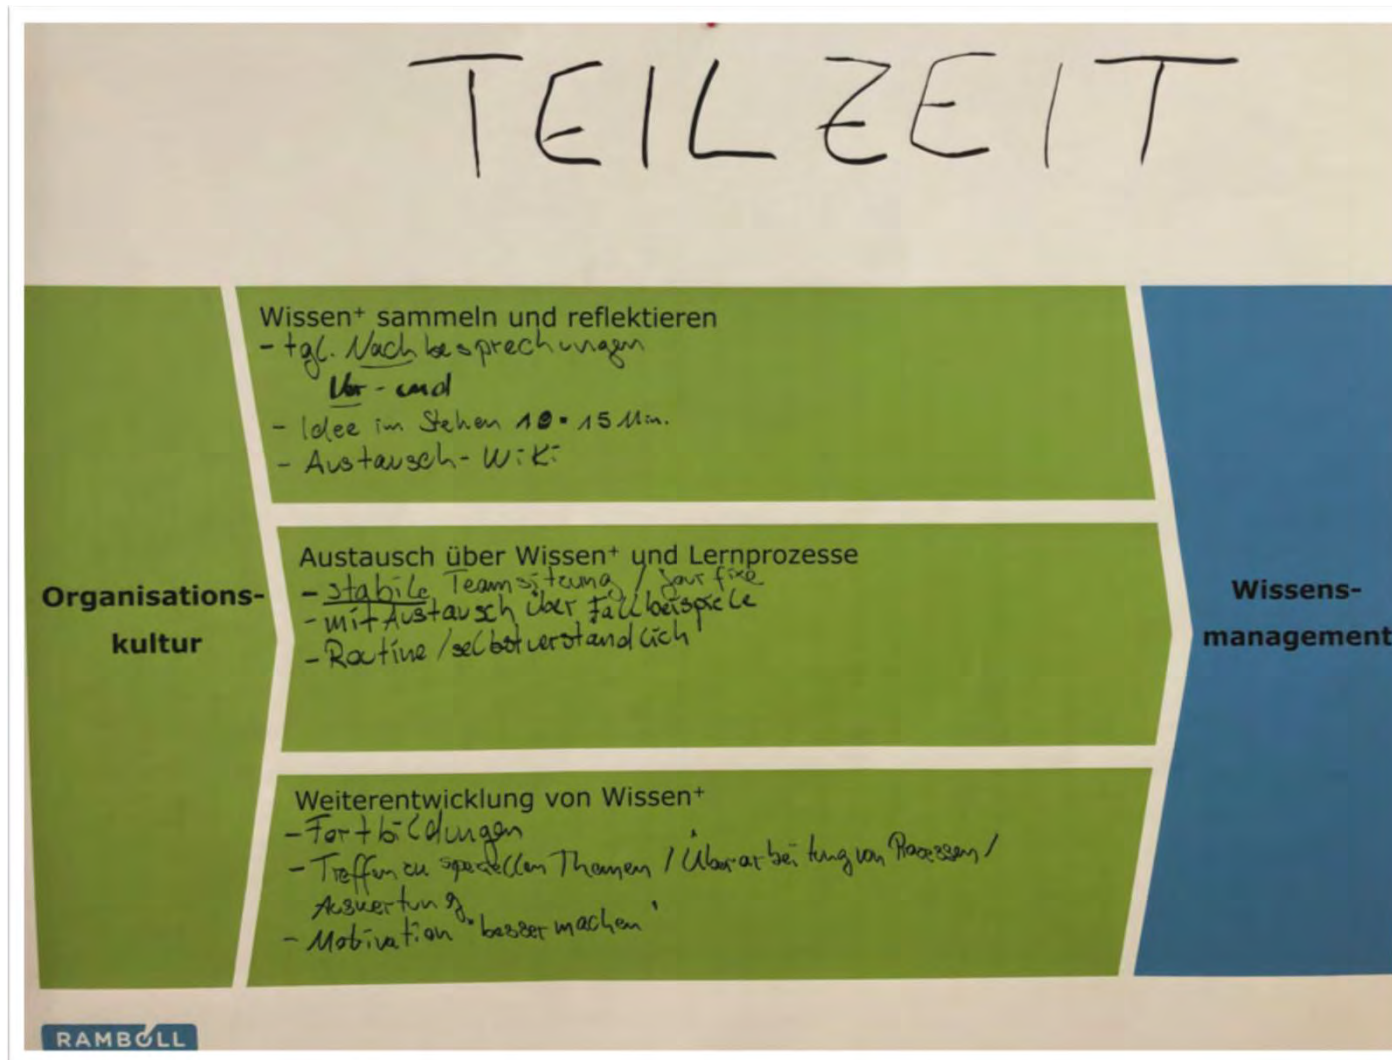 TEILZEIT
Wissen⁺ sammeln und reflektieren
- tgl. Nachbesprechungen
Vor- und
- Idee im Stehen 10-15 Min.
- Austausch-Wiki
Organisations-
kultur
Austausch über Wissen⁺ und Lernprozesse
- stabile Teamsitzung / Jour fixe
- mit Austausch über Fallbeispiele
- Routine / selbstverständlich
Weiterentwicklung von Wissen⁺
- Fortbildungen
- Treffen zu speziellen Themen / Überarbeitung von Prozessen /
Auswertung
- Motivation "besser machen"
Wissens-
management
RAMBOLL